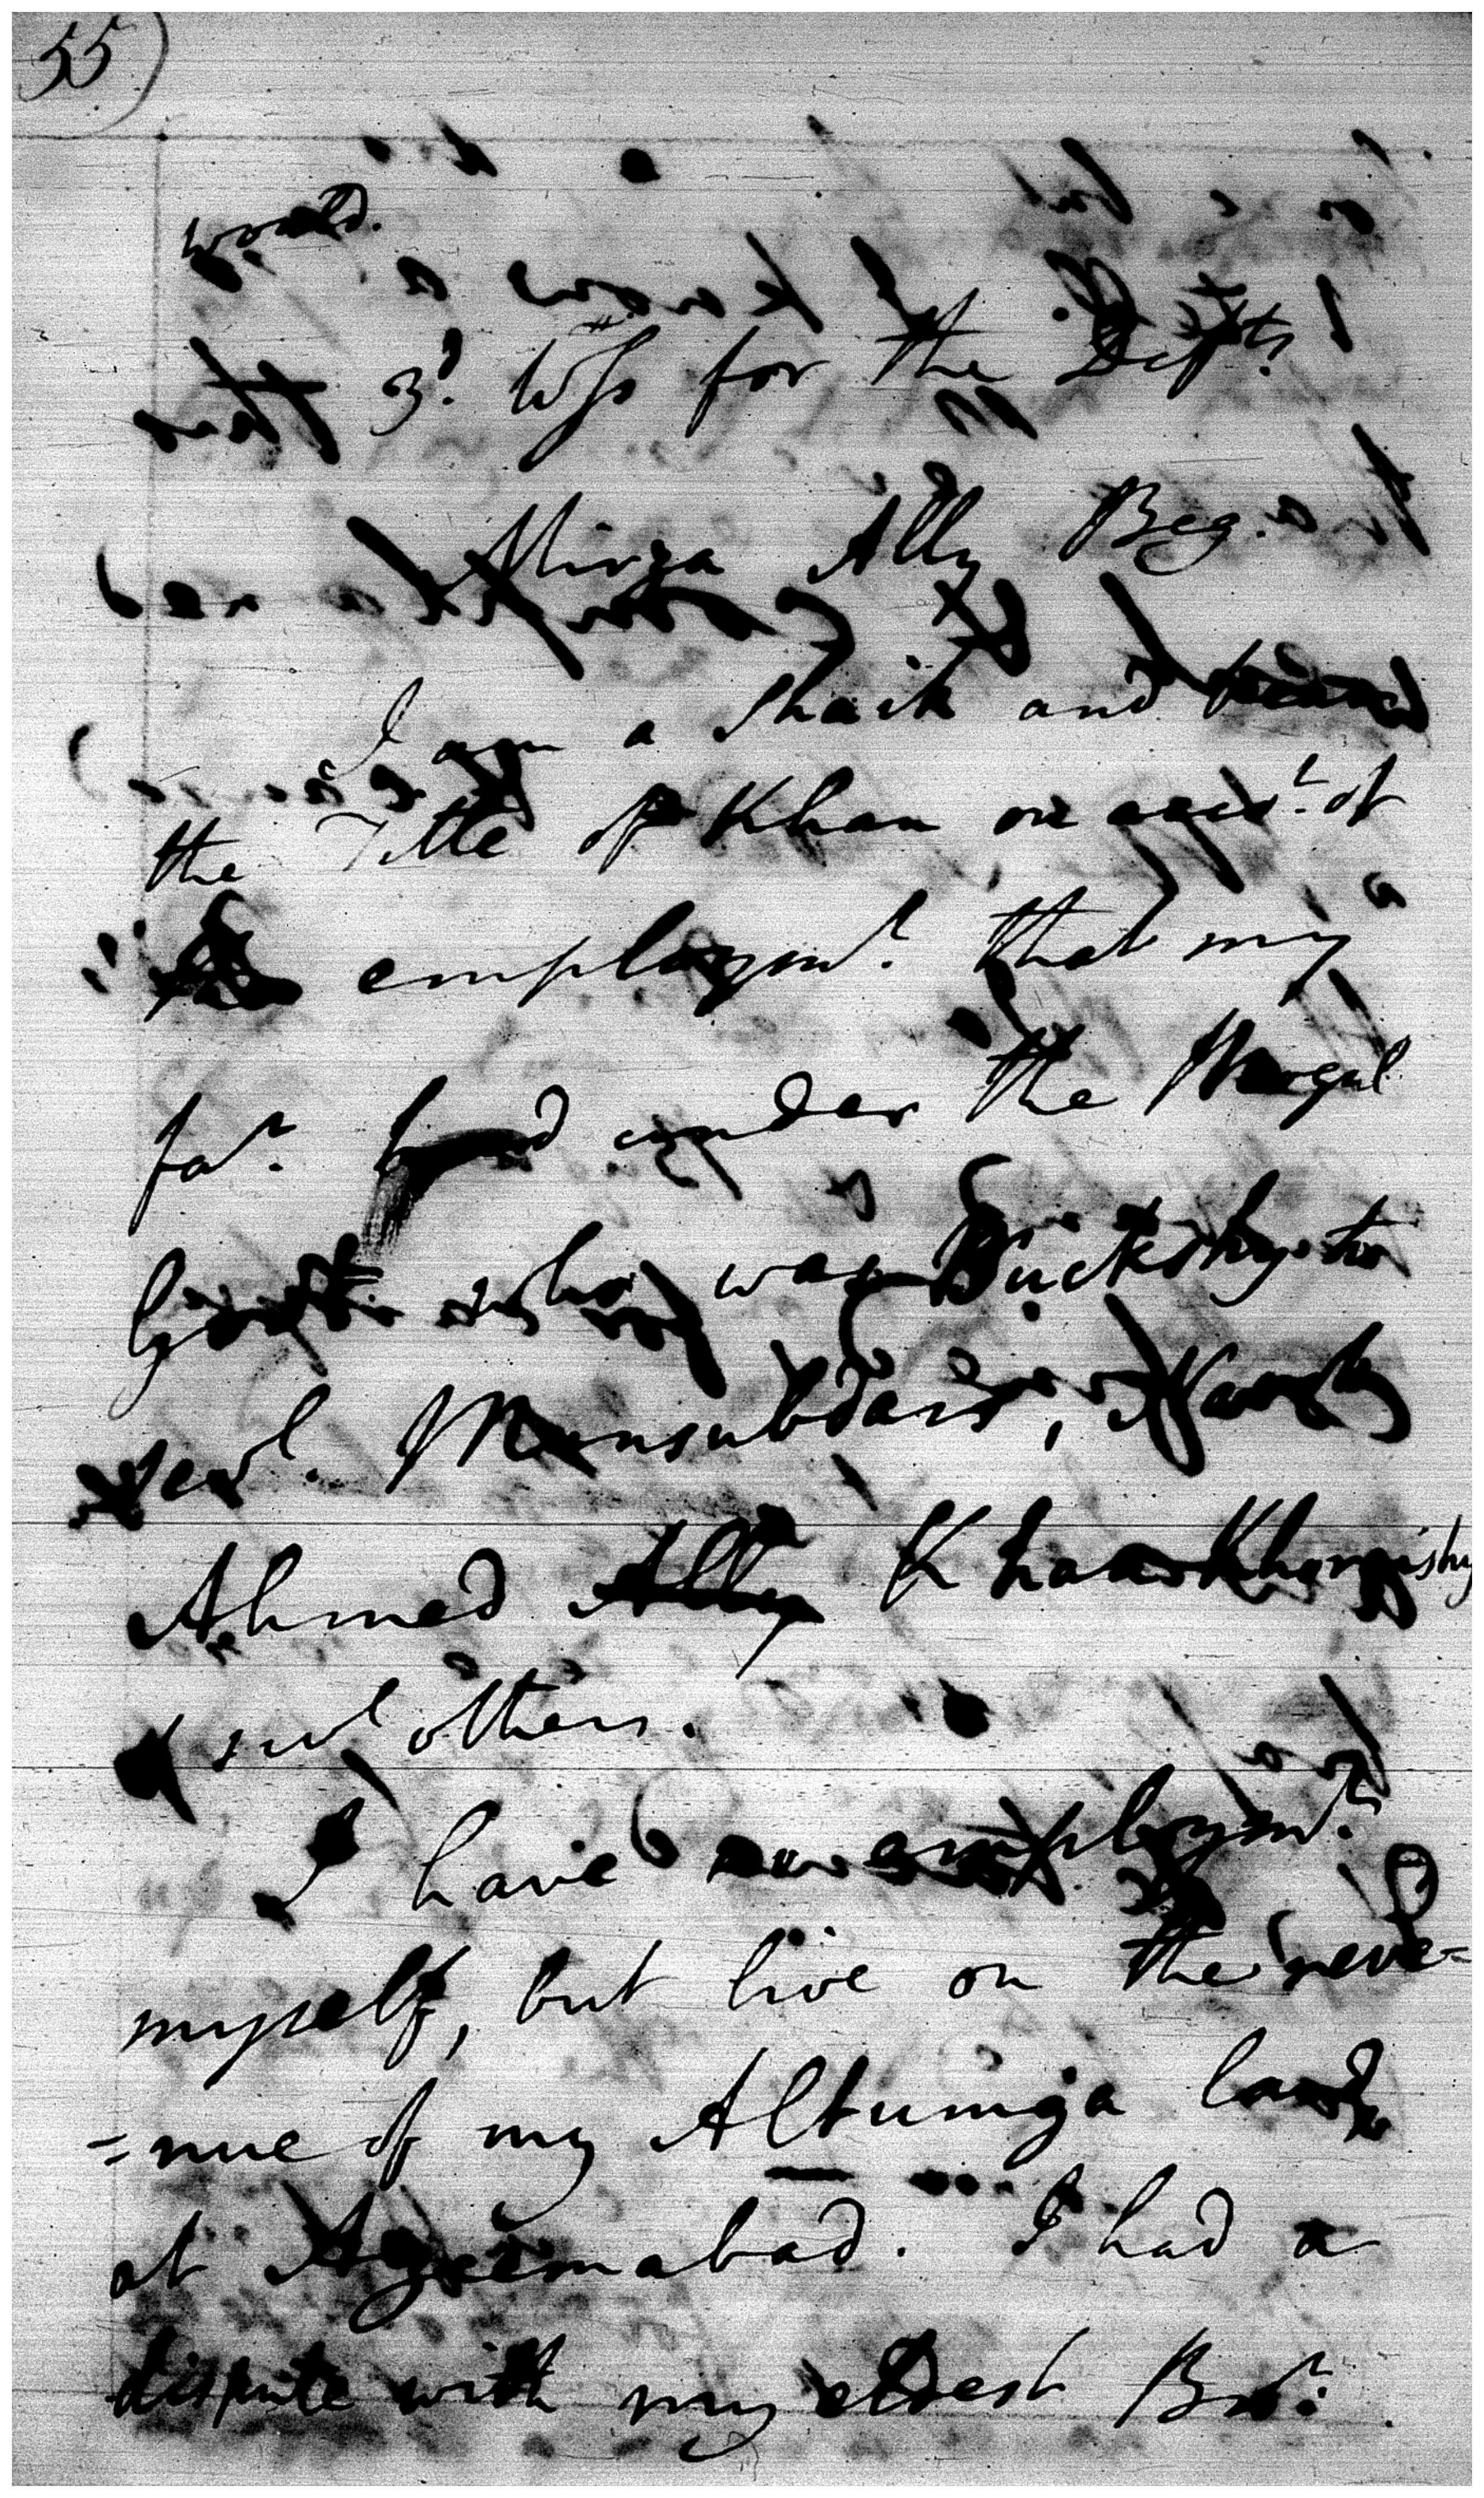 55
would.
3d. Wss for the Defts.
Mirza Ally Beg.
I am a Shaik and
the Title of Khan on acct. of
employmt. that my
far. had under the Mogul
who was Buckshy to
sevl. Munsubdars, Nawab
Ahmed Ally Khan Khorgishy
sevl others.
I have no employmt.
myself, but live on the reve=
=nue of my Altumga land
at Azeemabad. I had a
dispute with my eldest Bror.